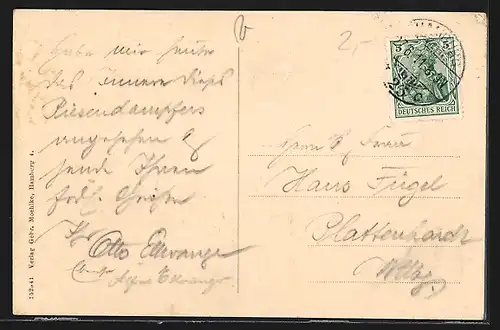 Habe mir heute
das Innere dieses
Riesendampfers
angesehen &
sende Ihnen
frdl. Grüße
Ihr
Otto Ellwanger
Ebenso
Alfred Ellwanger
2,-
5 5
DEUTSCHES REICH
Herrn & Frau
Hans Fügel
Plattenhardt
Wttbg.
252-41 Verlag Gebr. Moehlke, Hamburg 1.